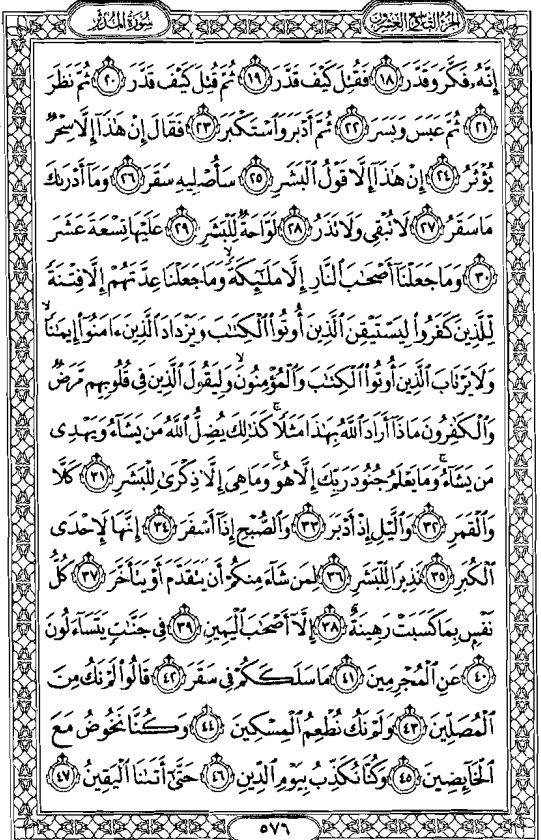 سورة المدثر
الجزء التاسع والعشرون
إِنَّهُۥ فَكَّرَ وَقَدَّرَ ﴿١٨﴾ فَقُتِلَ كَيْفَ قَدَّرَ ﴿١٩﴾ ثُمَّ قُتِلَ كَيْفَ قَدَّرَ ﴿٢٠﴾ ثُمَّ نَظَرَ
﴿٢١﴾ ثُمَّ عَبَسَ وَبَسَرَ ﴿٢٢﴾ ثُمَّ أَدْبَرَ وَٱسْتَكْبَرَ ﴿٢٣﴾ فَقَالَ إِنْ هَٰذَآ إِلَّا سِحْرٌ
يُؤْثَرُ ﴿٢٤﴾ إِنْ هَٰذَآ إِلَّا قَوْلُ ٱلْبَشَرِ ﴿٢٥﴾ سَأُصْلِيهِ سَقَرَ ﴿٢٦﴾ وَمَآ أَدْرَىٰكَ
مَا سَقَرُ ﴿٢٧﴾ لَا تُبْقِى وَلَا تَذَرُ ﴿٢٨﴾ لَوَّاحَةٌ لِّلْبَشَرِ ﴿٢٩﴾ عَلَيْهَا تِسْعَةَ عَشَرَ
﴿٣٠﴾ وَمَا جَعَلْنَآ أَصْحَٰبَ ٱلنَّارِ إِلَّا مَلَٰٓئِكَةً ۙ وَمَا جَعَلْنَا عِدَّتَهُمْ إِلَّا فِتْنَةً
لِّلَّذِينَ كَفَرُوا۟ لِيَسْتَيْقِنَ ٱلَّذِينَ أُوتُوا۟ ٱلْكِتَٰبَ وَيَزْدَادَ ٱلَّذِينَ ءَامَنُوٓا۟ إِيمَٰنًا ۙ
وَلَا يَرْتَابَ ٱلَّذِينَ أُوتُوا۟ ٱلْكِتَٰبَ وَٱلْمُؤْمِنُونَ ۙ وَلِيَقُولَ ٱلَّذِينَ فِى قُلُوبِهِم مَّرَضٌ
وَٱلْكَٰفِرُونَ مَاذَآ أَرَادَ ٱللَّهُ بِهَٰذَا مَثَلًا ۚ كَذَٰلِكَ يُضِلُّ ٱللَّهُ مَن يَشَآءُ وَيَهْدِى
مَن يَشَآءُ ۚ وَمَا يَعْلَمُ جُنُودَ رَبِّكَ إِلَّا هُوَ ۚ وَمَا هِىَ إِلَّا ذِكْرَىٰ لِلْبَشَرِ ﴿٣١﴾ كَلَّا
وَٱلْقَمَرِ ﴿٣٢﴾ وَٱلَّيْلِ إِذْ أَدْبَرَ ﴿٣٣﴾ وَٱلصُّبْحِ إِذَآ أَسْفَرَ ﴿٣٤﴾ إِنَّهَا لَإِحْدَى
ٱلْكُبَرِ ﴿٣٥﴾ نَذِيرًا لِّلْبَشَرِ ﴿٣٦﴾ لِمَن شَآءَ مِنكُمْ أَن يَتَقَدَّمَ أَوْ يَتَأَخَّرَ ﴿٣٧﴾ كُلُّ
نَفْسٍۭ بِمَا كَسَبَتْ رَهِينَةٌ ﴿٣٨﴾ إِلَّآ أَصْحَٰبَ ٱلْيَمِينِ ﴿٣٩﴾ فِى جَنَّٰتٍ يَتَسَآءَلُونَ
﴿٤٠﴾ عَنِ ٱلْمُجْرِمِينَ ﴿٤١﴾ مَا سَلَكَكُمْ فِى سَقَرَ ﴿٤٢﴾ قَالُوا۟ لَمْ نَكُ مِنَ
ٱلْمُصَلِّينَ ﴿٤٣﴾ وَلَمْ نَكُ نُطْعِمُ ٱلْمِسْكِينَ ﴿٤٤﴾ وَكُنَّا نَخُوضُ مَعَ
ٱلْخَآئِضِينَ ﴿٤٥﴾ وَكُنَّا نُكَذِّبُ بِيَوْمِ ٱلدِّينِ ﴿٤٦﴾ حَتَّىٰٓ أَتَىٰنَا ٱلْيَقِينُ ﴿٤٧﴾
٥٧٦